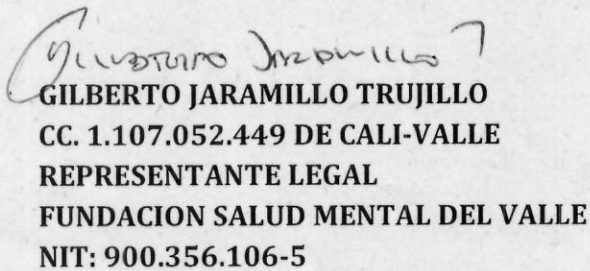 Gilberto Jaramillo T
GILBERTO JARAMILLO TRUJILLO
CC. 1.107.052.449 DE CALI-VALLE
REPRESENTANTE LEGAL
FUNDACION SALUD MENTAL DEL VALLE
NIT: 900.356.106-5